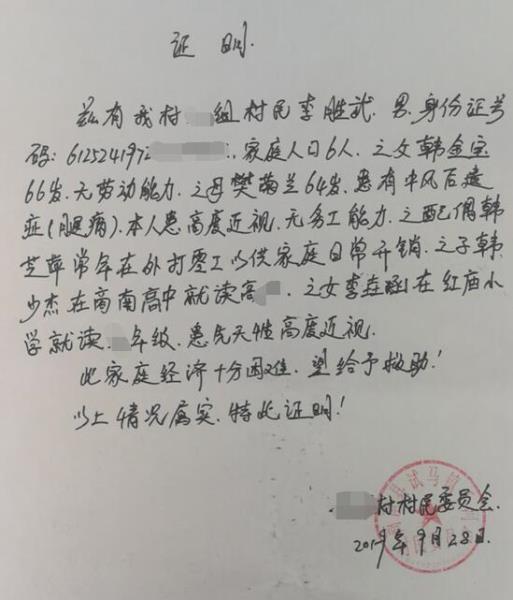 证 明.
兹有我村 组村民李胜武.男.身份证号
码:6125241972 .家庭人口6人.之父韩金宝
66岁.无劳动能力.之母樊菊兰64岁.患有中风后遗
症(腿病).本人患高度近视.无务工能力.之配偶韩
芝萍常年在外打零工以供家庭日常开销.之子韩
少杰在商南高中就读高 .之女李垚函在红庙小
学就读 年级.患先天性高度近视.
此家庭经济十分困难.望给予救助!
以上情况属实.特此证明!
村村民委员会.
2019年9月28日.
试马镇